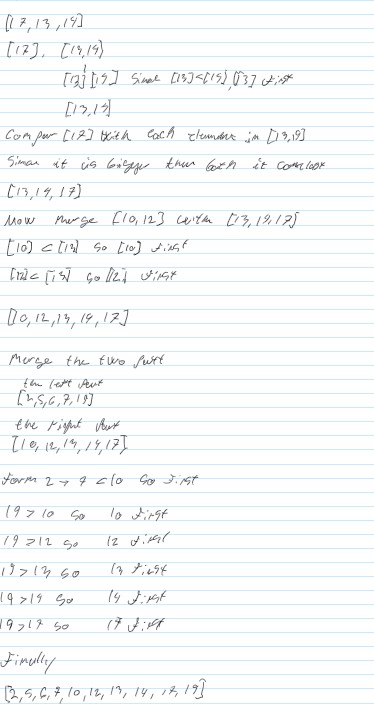 [17, 13, 14]
[17], [13, 14]
[13] [14] Since [13] < [14], [13] first
[13, 14]
Compar [17] with each element in [13, 14]
Since it is bigger then both it com last
[13, 14, 17]
Now merge [10, 12] with [13, 14, 17]
[10] < [13] so [10] first
[12] < [13] so [12] first
[10, 12, 13, 14, 17]
Merge the two part
the left part
[2, 5, 6, 7, 19]
the right part
[10, 12, 13, 14, 17]
form 2 → 7 < 10 so first
19 > 10 so 10 first
19 > 12 so 12 first
19 > 13 so 13 first
19 > 14 so 14 first
19 > 17 so 17 first
Finally
[2, 5, 6, 7, 10, 12, 13, 14, 17, 19]